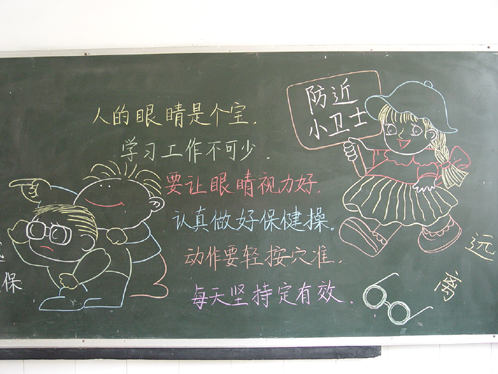 人的眼睛是个宝.
学习工作不可少.
要让眼睛视力好.
认真做好保健操.
动作要轻按穴准.
每天坚持定有效.
防近
小卫士
远
离
保